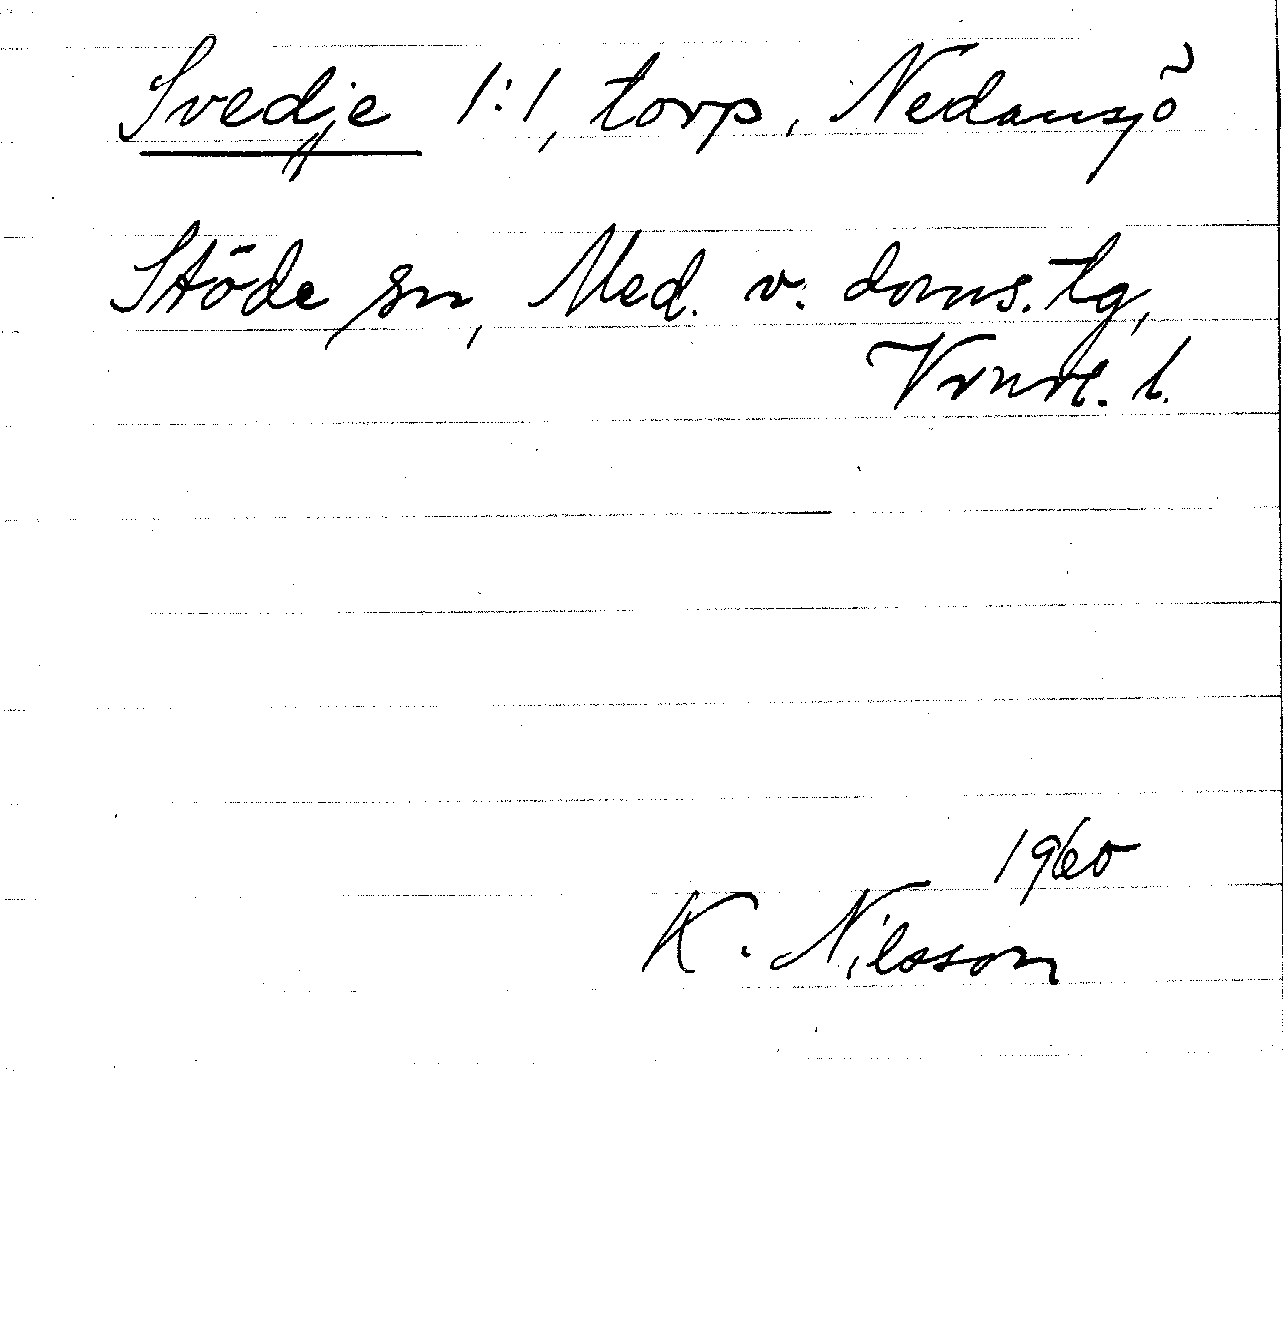 Svedje 1:1, torp, Nedansjö
Stöde sn, Med. v. doms. tg,
Vrnrl. l.
1960
K. Nilsson